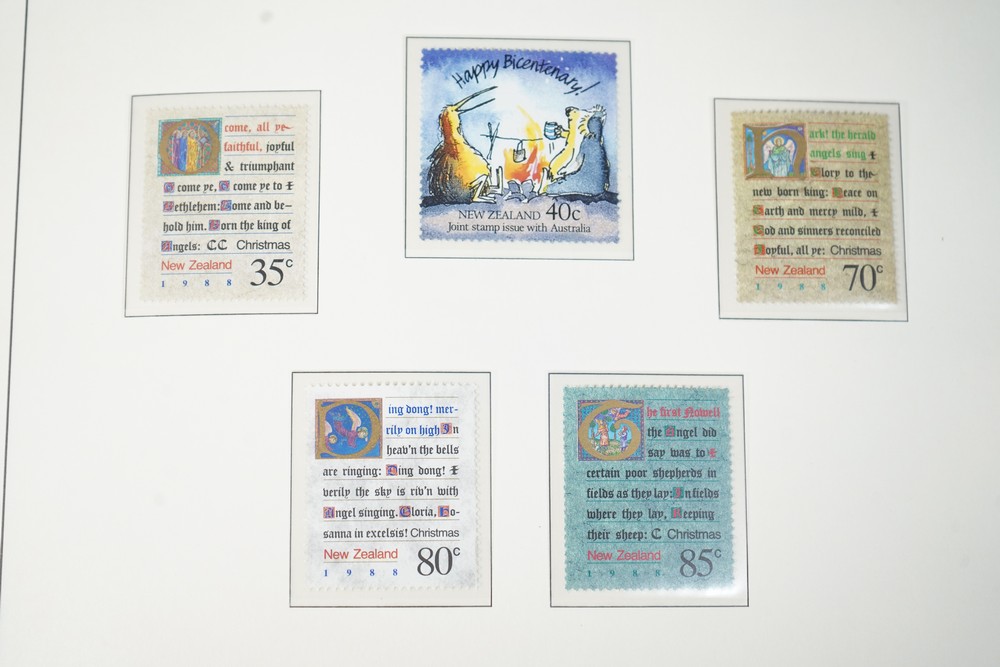 Happy Bicentenary!
NEW ZEALAND 40c
Joint stamp issue with Australia
O come, all ye
faithful, joyful
& triumphant
O come ye, O come ye to
Bethlehem: Come and be-
hold him. Born the king of
Angels: Christmas
New Zealand
1988 35c
Hark! the herald
angels sing
Glory to the
new born king: Peace on
Earth and mercy mild,
God and sinners reconciled
Joyful, all ye: Christmas
New Zealand
1988 70c
Ding dong! mer-
rily on high In
heav'n the bells
are ringing: Ding dong!
verily the sky is riv'n with
Angel singing. Gloria, Ho-
sanna in excelsis! Christmas
New Zealand
1988 80c
The first Nowell
the Angel did
say was to
certain poor shepherds in
fields as they lay: In fields
where they lay, Keeping
their sheep: Christmas
New Zealand
1988 85c